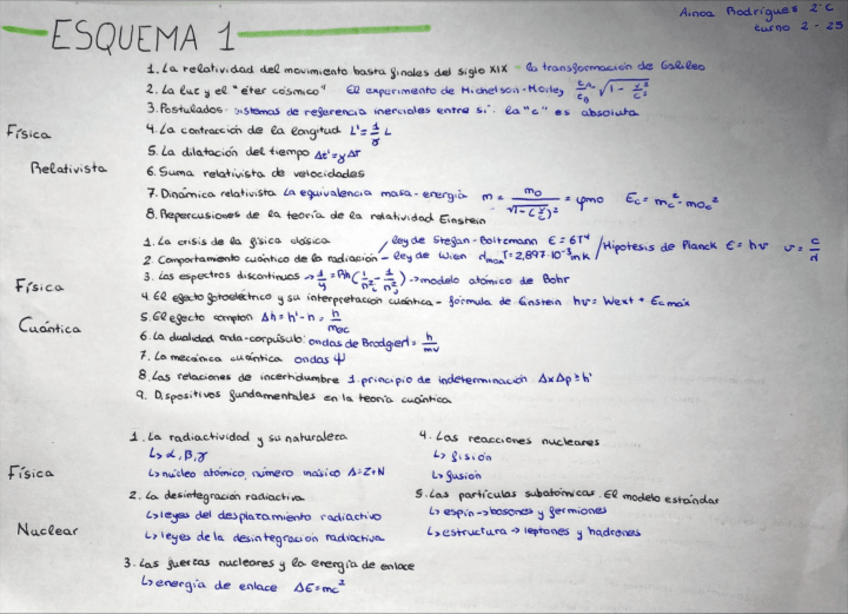 Ainoa Rodrigues 2ºC
turno 2 - 25
ESQUEMA 1
1. La relatividad del movimiento hasta finales del siglo XIX - la transformación de Galileo
2. La luz y el "éter cósmico" El experimento de Michelson-Morley √1 - v²/c²
3. Postulados - sistemas de referencia inerciales entre sí. la "c" es absoluta
Física
4. La contracción de la longitud L' = 1/γ L
5. La dilatación del tiempo Δt' = γΔT
Relativista
6. Suma relativista de velocidades
7. Dinámica relativista La equivalencia masa-energía m = m0/√1-(v/c)² = γm0 Ec = mc² - m0c²
8. Repercusiones de la teoría de la relatividad Einstein
1. La crisis de la física clásica
2. Comportamiento cuántico de la radiación / ley de Stefan-Boltzmann E = 6T⁴ - ley de Wien dmax T = 2,897·10⁻³ mK / Hipotesis de Planck E = hv v = c/d
3. Los espectros discontinuos -> 1/y = Rh (1/n²i - 1/n²j) -> modelo atómico de Bohr
Física
4. El efecto fotoeléctrico y su interpretación cuántica - fórmula de Einstein hv = Wext + Ecmáx
5. El efecto compton Δh = h' - h = h/m0c
Cuántica
6. La dualidad onda-corpúsculo: ondas de = h/mv
7. La mecánica cuántica ondas ψ
8. Las relaciones de incertidumbre 1. principio de indeterminación Δx Δp ≥ h'
9. Dispositivos fundamentales en la teoría cuántica
1. La radiactividad y su naturaleza
↳ α, β, γ
↳ núcleo atómico, número másico A=Z+N
Física
2. La desintegración radiactiva
↳ leyes del desplazamiento radiactivo
↳ leyes de la desintegración radiactiva
Nuclear
3. Las fuerzas nucleares y la energía de enlace
↳ energía de enlace ΔE = mc²
4. Las reacciones nucleares
↳ fisión
↳ fusión
5. Las partículas subatómicas. El modelo estándar
↳ espín -> bosones y fermiones
↳ estructura -> leptones y hadrones